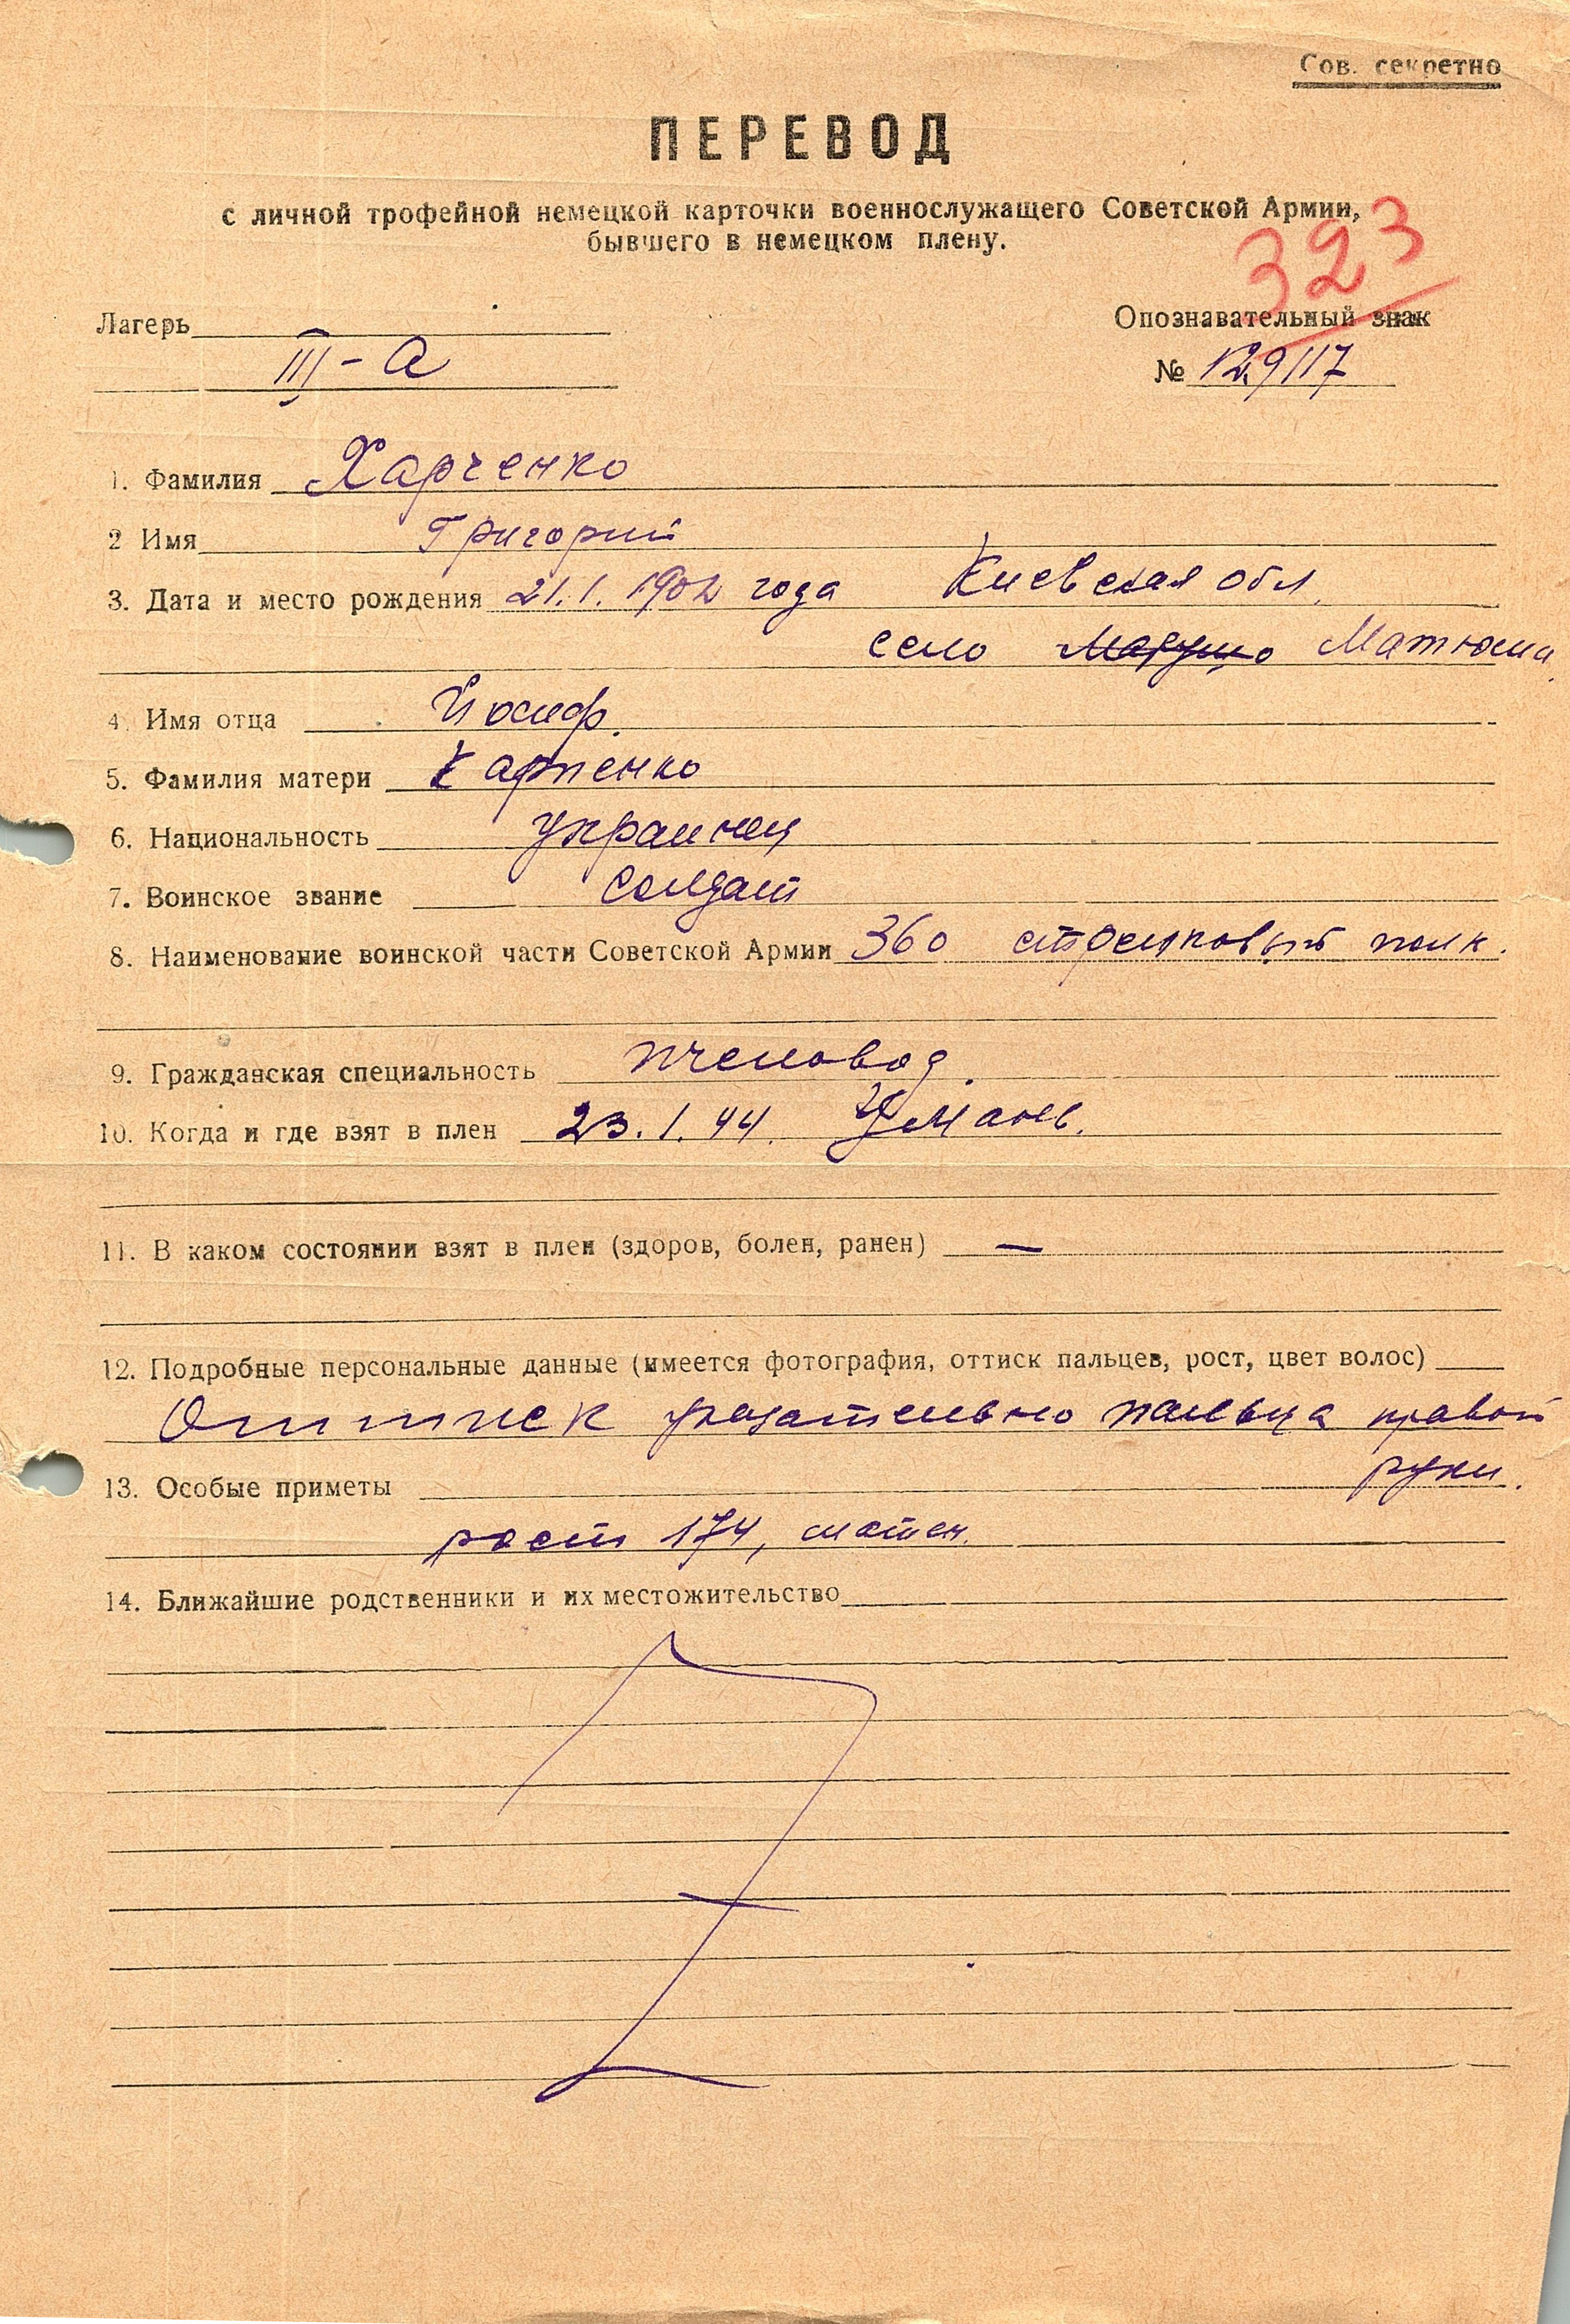 Сов. секретно
ПЕРЕВОД
с личной трофейной немецкой карточки военнослужащего Советской Армии,
бывшего в немецком плену.
323
Лагерь
Опознавательный знак
III-а
№ 129117
1. Фамилия Харченко
2 Имя Григорий
3. Дата и место рождения 21.1.1902 года Киевская обл.
село Матюши
4. Имя отца Йосиф.
5. Фамилия матери Карпенко
6. Национальность украинец
7. Воинское звание солдат
8. Наименование воинской части Советской Армии 360 стрелковый полк.
9. Гражданская специальность пчеловод.
10. Когда и где взят в плен 23.1.44. Умань.
11. В каком состоянии взят в плен (здоров, болен, ранен) —
12. Подробные персональные данные (имеется фотография, оттиск пальцев, рост, цвет волос)
Оттиск указательно пальца правой
руки.
13. Особые приметы
рост 174, шатен.
14. Ближайшие родственники и их местожительство